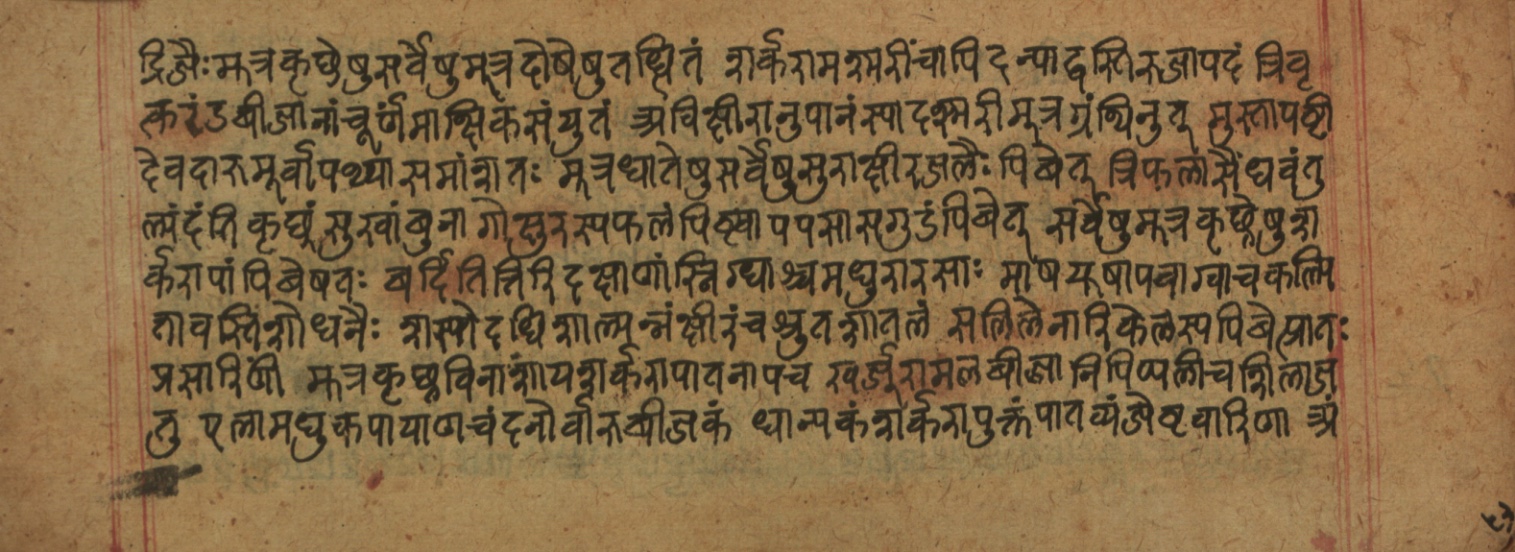 द्रिजैः मूत्रकृछ्रेषु सर्वेषु मूत्रदोषेषु तध्धितं शर्करामश्मरींचापि दन्याद्वस्तिरुजापदं त्रिवृ
त्करंडबीजानांचूर्णमाक्षिकसंयुतं अविक्षीरानुपानंस्पादश्मरीमूत्रग्रंथिनुत् मुस्तापष्टी
देवदारुमूर्वापथ्यासमांशतः मूत्रघातेषुसर्वेषुसुराक्षीरजलैः पिबेत् त्रिफलासैंधवंतु
ल्यंदंति कृछ्रं सुखांबुना गोक्षुरस्पफलंपिष्ट्वा पपसासगुडंपिबेत् सर्वेषुमूत्रकृछ्रेषुशा
र्करापांपिबेषतः बर्दितित्तिरिदक्षाणांस्निग्धाश्चमधुरारसाः माषयूषापवाग्वाचकल्पि
तावस्तिशोधनैः शस्पोदधिशाल्पन्नंक्षीरंचश्रुतशातलं सलिलंनारिकेलस्पपिबेत्प्रातः
प्रसारिणी मूत्रकृछ्रविनाशायशर्करापातनापच खर्जूरामलबीजानिपिप्पलीचशिलाज
तु एलामधुकपाषाणचंदनौर्वारुबीजकं धान्पकंशर्करापुक्तंपातव्यंज्येष्टवारिणा अं